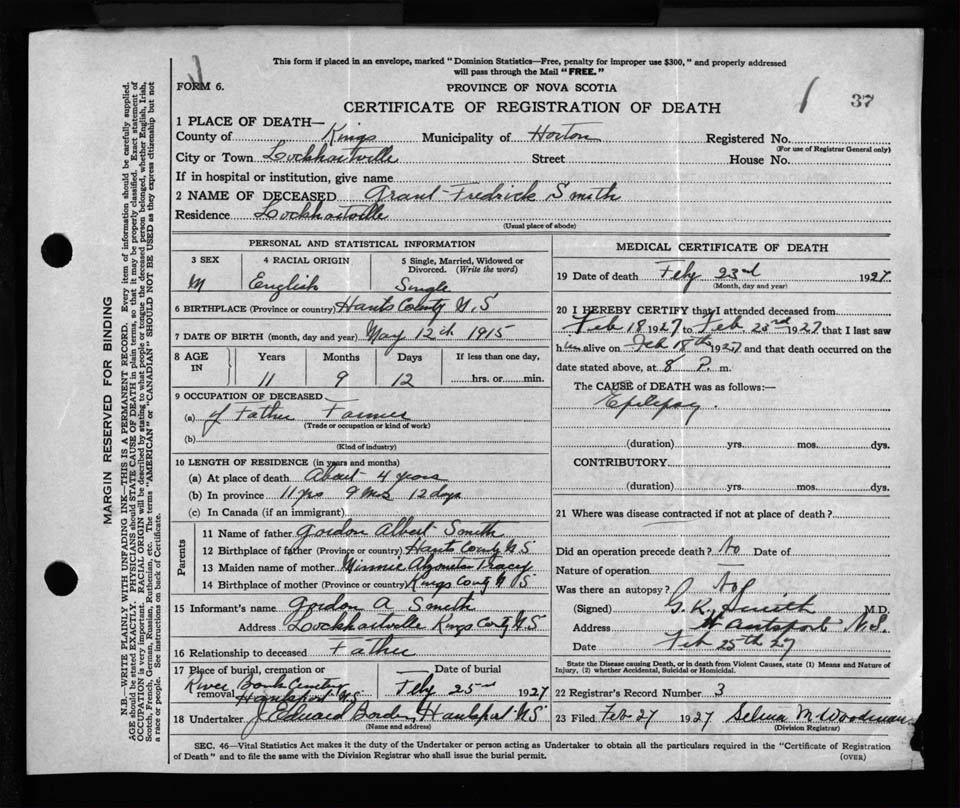 This form if placed in an envelope, marked "Dominion Statistics—Free, penalty for improper use $300," and properly addressed
will pass through the Mail "FREE."
FORM 6.
PROVINCE OF NOVA SCOTIA
CERTIFICATE OF REGISTRATION OF DEATH
37
1 PLACE OF DEATH—
County of Kings Municipality of Horton Registered No.
(For use of Registrar General only)
City or Town Lockhartville Street House No.
If in hospital or institution, give name
2 NAME OF DECEASED Grant Fredrick Smith
Residence Lockhartville
(Usual place of abode)
PERSONAL AND STATISTICAL INFORMATION
3 SEX 4 RACIAL ORIGIN 5 Single, Married, Widowed or
Divorced. (Write the word)
M English Single
6 BIRTHPLACE (Province or country) Hants County N.S
7 DATE OF BIRTH (month, day and year) May 12th 1915
8 AGE IN Years Months Days If less than one day,
11 9 12 hrs. or min.
9 OCCUPATION OF DECEASED
(a) of Father Farmer
(Trade or occupation or kind of work)
(b)
(Kind of industry)
10 LENGTH OF RESIDENCE (in years and months)
(a) At place of death About 4 years
(b) In province 11 yrs 9 Mos 12 days
(c) In Canada (if an immigrant)
Parents
11 Name of father Gordon Albert Smith
12 Birthplace of father (Province or country) Hants County N.S
13 Maiden name of mother Minnie Tracey
14 Birthplace of mother (Province or country) Kings County N S
15 Informant's name Gordon A Smith
Address Lockhartville Kings County N.S
16 Relationship to deceased Father
17 Place of burial, cremation or Date of burial
removal River Bank Cemetery Hantsport N.S Feby 25rd 1927
18 Undertaker J Edward Borden, Hantsport N.S
(Name and address)
MEDICAL CERTIFICATE OF DEATH
19 Date of death Feby 23rd 1927
(Month, day and year)
20 I HEREBY CERTIFY that I attended deceased from
Feb 18 1927 to Feb 23rd 1927 that I last saw
him alive on Feb 18th 1927 and that death occurred on the
date stated above, at 8 P. m.
The CAUSE of DEATH was as follows:—
Epilepsy.
(duration) yrs. mos. dys.
CONTRIBUTORY.
(duration) yrs. mos. dys.
21 Where was disease contracted if not at place of death?
Did an operation precede death? No Date of
Nature of operation
Was there an autopsy? No
(Signed) G. K. Smith M.D.
Address Hantsport N.S.
Date Feb 25th 27
State the Disease causing Death, or in death from Violent Causes, state (1) Means and Nature of
Injury, (2) whether Accidental, Suicidal or Homicidal.
22 Registrar's Record Number 3
23 Filed Feb 27 1927 Selina M Woodman
(Division Registrar)
SEC. 46—Vital Statistics Act makes it the duty of the Undertaker or person acting as Undertaker to obtain all the particulars required in the "Certificate of Registration
of Death" and to file the same with the Division Registrar who shall issue the burial permit.
(OVER)
MARGIN RESERVED FOR BINDING
N.B.—WRITE PLAINLY WITH UNFADING INK—THIS IS A PERMANENT RECORD. Every item of information should be carefully supplied.
AGE should be stated EXACTLY. PHYSICIANS should STATE CAUSE OF DEATH in plain terms, so that it may be properly classified. Exact statement of
OCCUPATION is very important. RACIAL ORIGIN will be described by stating to what people or tongue the deceased person belonged, whether English, Irish,
Scotch, French, German, Russian, Ruthenian, etc. The terms "AMERICAN" or "CANADIAN" SHOULD NOT BE USED as they express citizenship but not
a race or people. See instructions on back of Certificate.